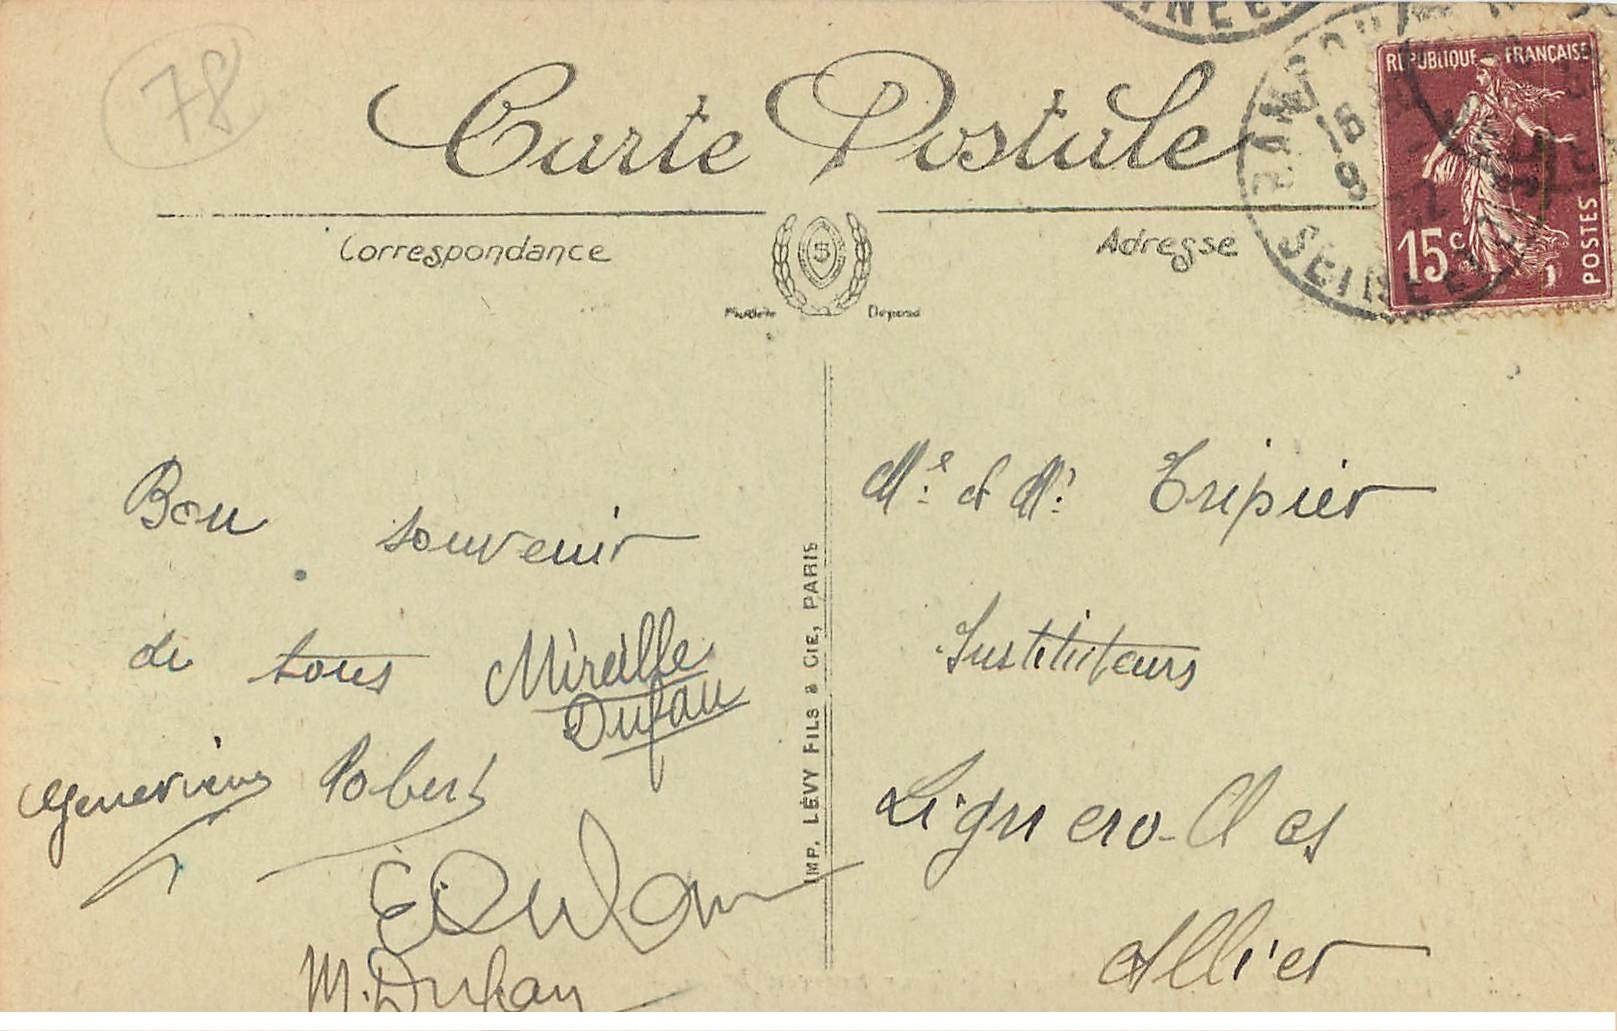 78
Carte Postale
Correspondance
Adresse
S
Modèle Déposé
RÉPUBLIQUE FRANÇAISE
15c
POSTES
SEINE
Bon souvenir
de tous Mireille
Dufau
Geneviève Robert
M. Dufau
IMP. LÉVY FILS & CIE, PARIS
Me. et Mr. Tripier
Instituteurs
Lignerolles
Allier